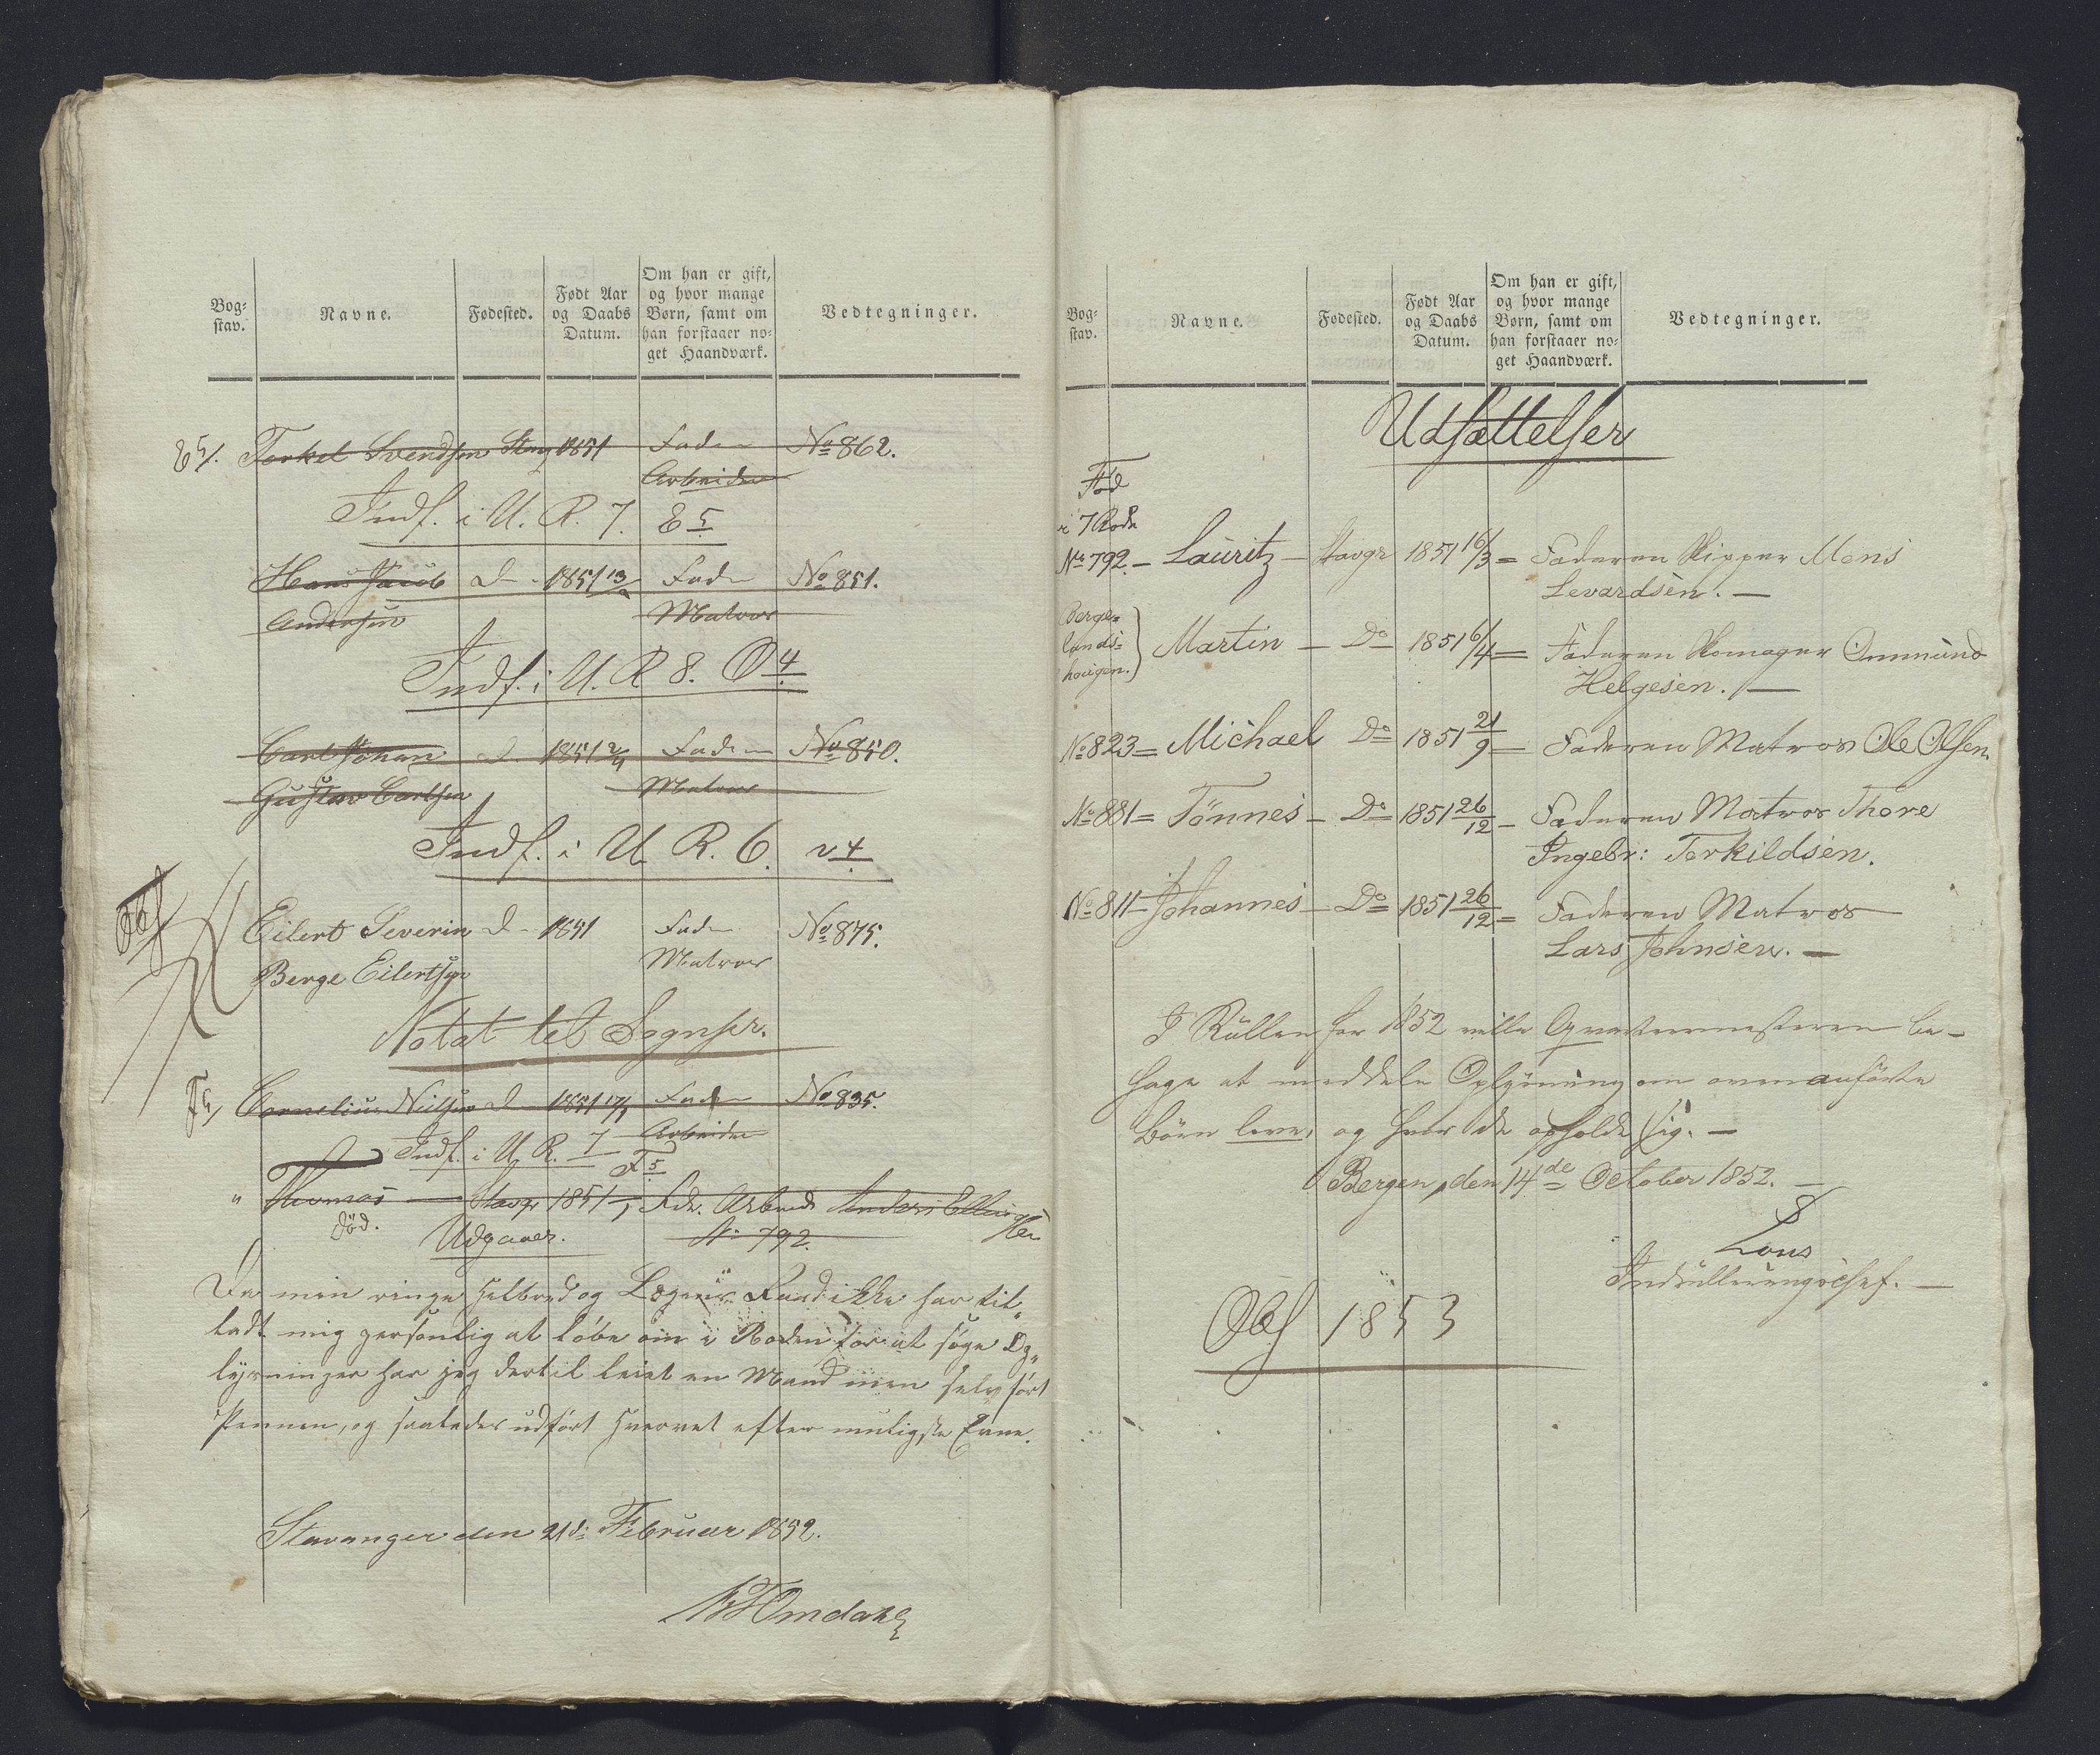 Bog-
stav.
Navne.
Fødested.
Født Aar
og Daabs
Datum.
Om han er gift,
og hvor mange
Børn, samt om
han forstaaer no-
get Haandværk.
Vedtegninger.
E 5/. Torkel Svendsen Stavg 1851 Fader No 862.
Arbeider
Indf. i U. R. 7. E 5
Hans Jacob D- 1851 Fader No 851.
Andersen Matros
Indf. i U. R 8. O 4
Carl Johan D. 1851 Fader No 850.
Gustav Carlsen Matros
Indf. i U. R. 6. v 4
Obs
Eilert Severin D- 1851 Fader No 875.
Berge Eilertsen Matros
Notat til Sognepr.
F 5/ Cornelius Neilsen D- 1851 Fader No 835.
Indf. i U. R. 7 Arbeider
F 5
" Thomas Stavgr 1851 Fdr. Arbeid Anders Elling
sen
død. Udgaaer. No 792.
Da min ringe Helbred og Lægens Raad ikke har til-
ladt mig personlig at løbe om i Roden for at søge Op-
lysninger har jeg dertil leiet en Mand men selv ført
Pennen, og saaledes udført Hvervet efter muligste Evne.
Stavanger den 21de Februar 1852.
Omdahl
Bog-
stav.
Navne.
Fødested.
Født Aar
og Daabs
Datum.
Om han er gift,
og hvor mange
Børn, samt om
han forstaaer no-
get Haandværk.
Vedtegninger.
Udsættelser
Fød
i 7 Rode
No 792. – Lauritz – Stavgr 1851 16/3 = Faderen Skipper Mons
Levardsen. –
Berge-
lands-
hougen.) Martin – Do 1851 6/4 = Faderen Skomager Ommund
Helgesen. –
No 823 = Michael Do 1851 21/9 – Faderen Matros Ole Olsen.
No 881 = Tönnes – Do 1851 26/12 – Faderen Matros Thore
Ingebr: Torkildsen.
No 811 – Johannes – Do 1851 26/12 = Faderen Matros
Lars Johnsen. –
I Rullen for 1852 ville Qvarteermesteren be-
hage at meddele Oplysning om ovenanførte
Börn leve, og hvor de opholde sig. –
Bergen, den 14de October 1852. –
Lous
Indrulleringschef. –
Obs 1853